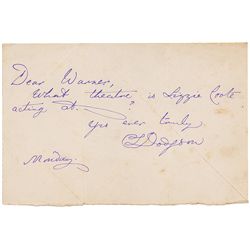 Dear Warner,
What theatre is Lizzie Coote
acting at?
Yrs ever truly,
CLDodgson
Monday.